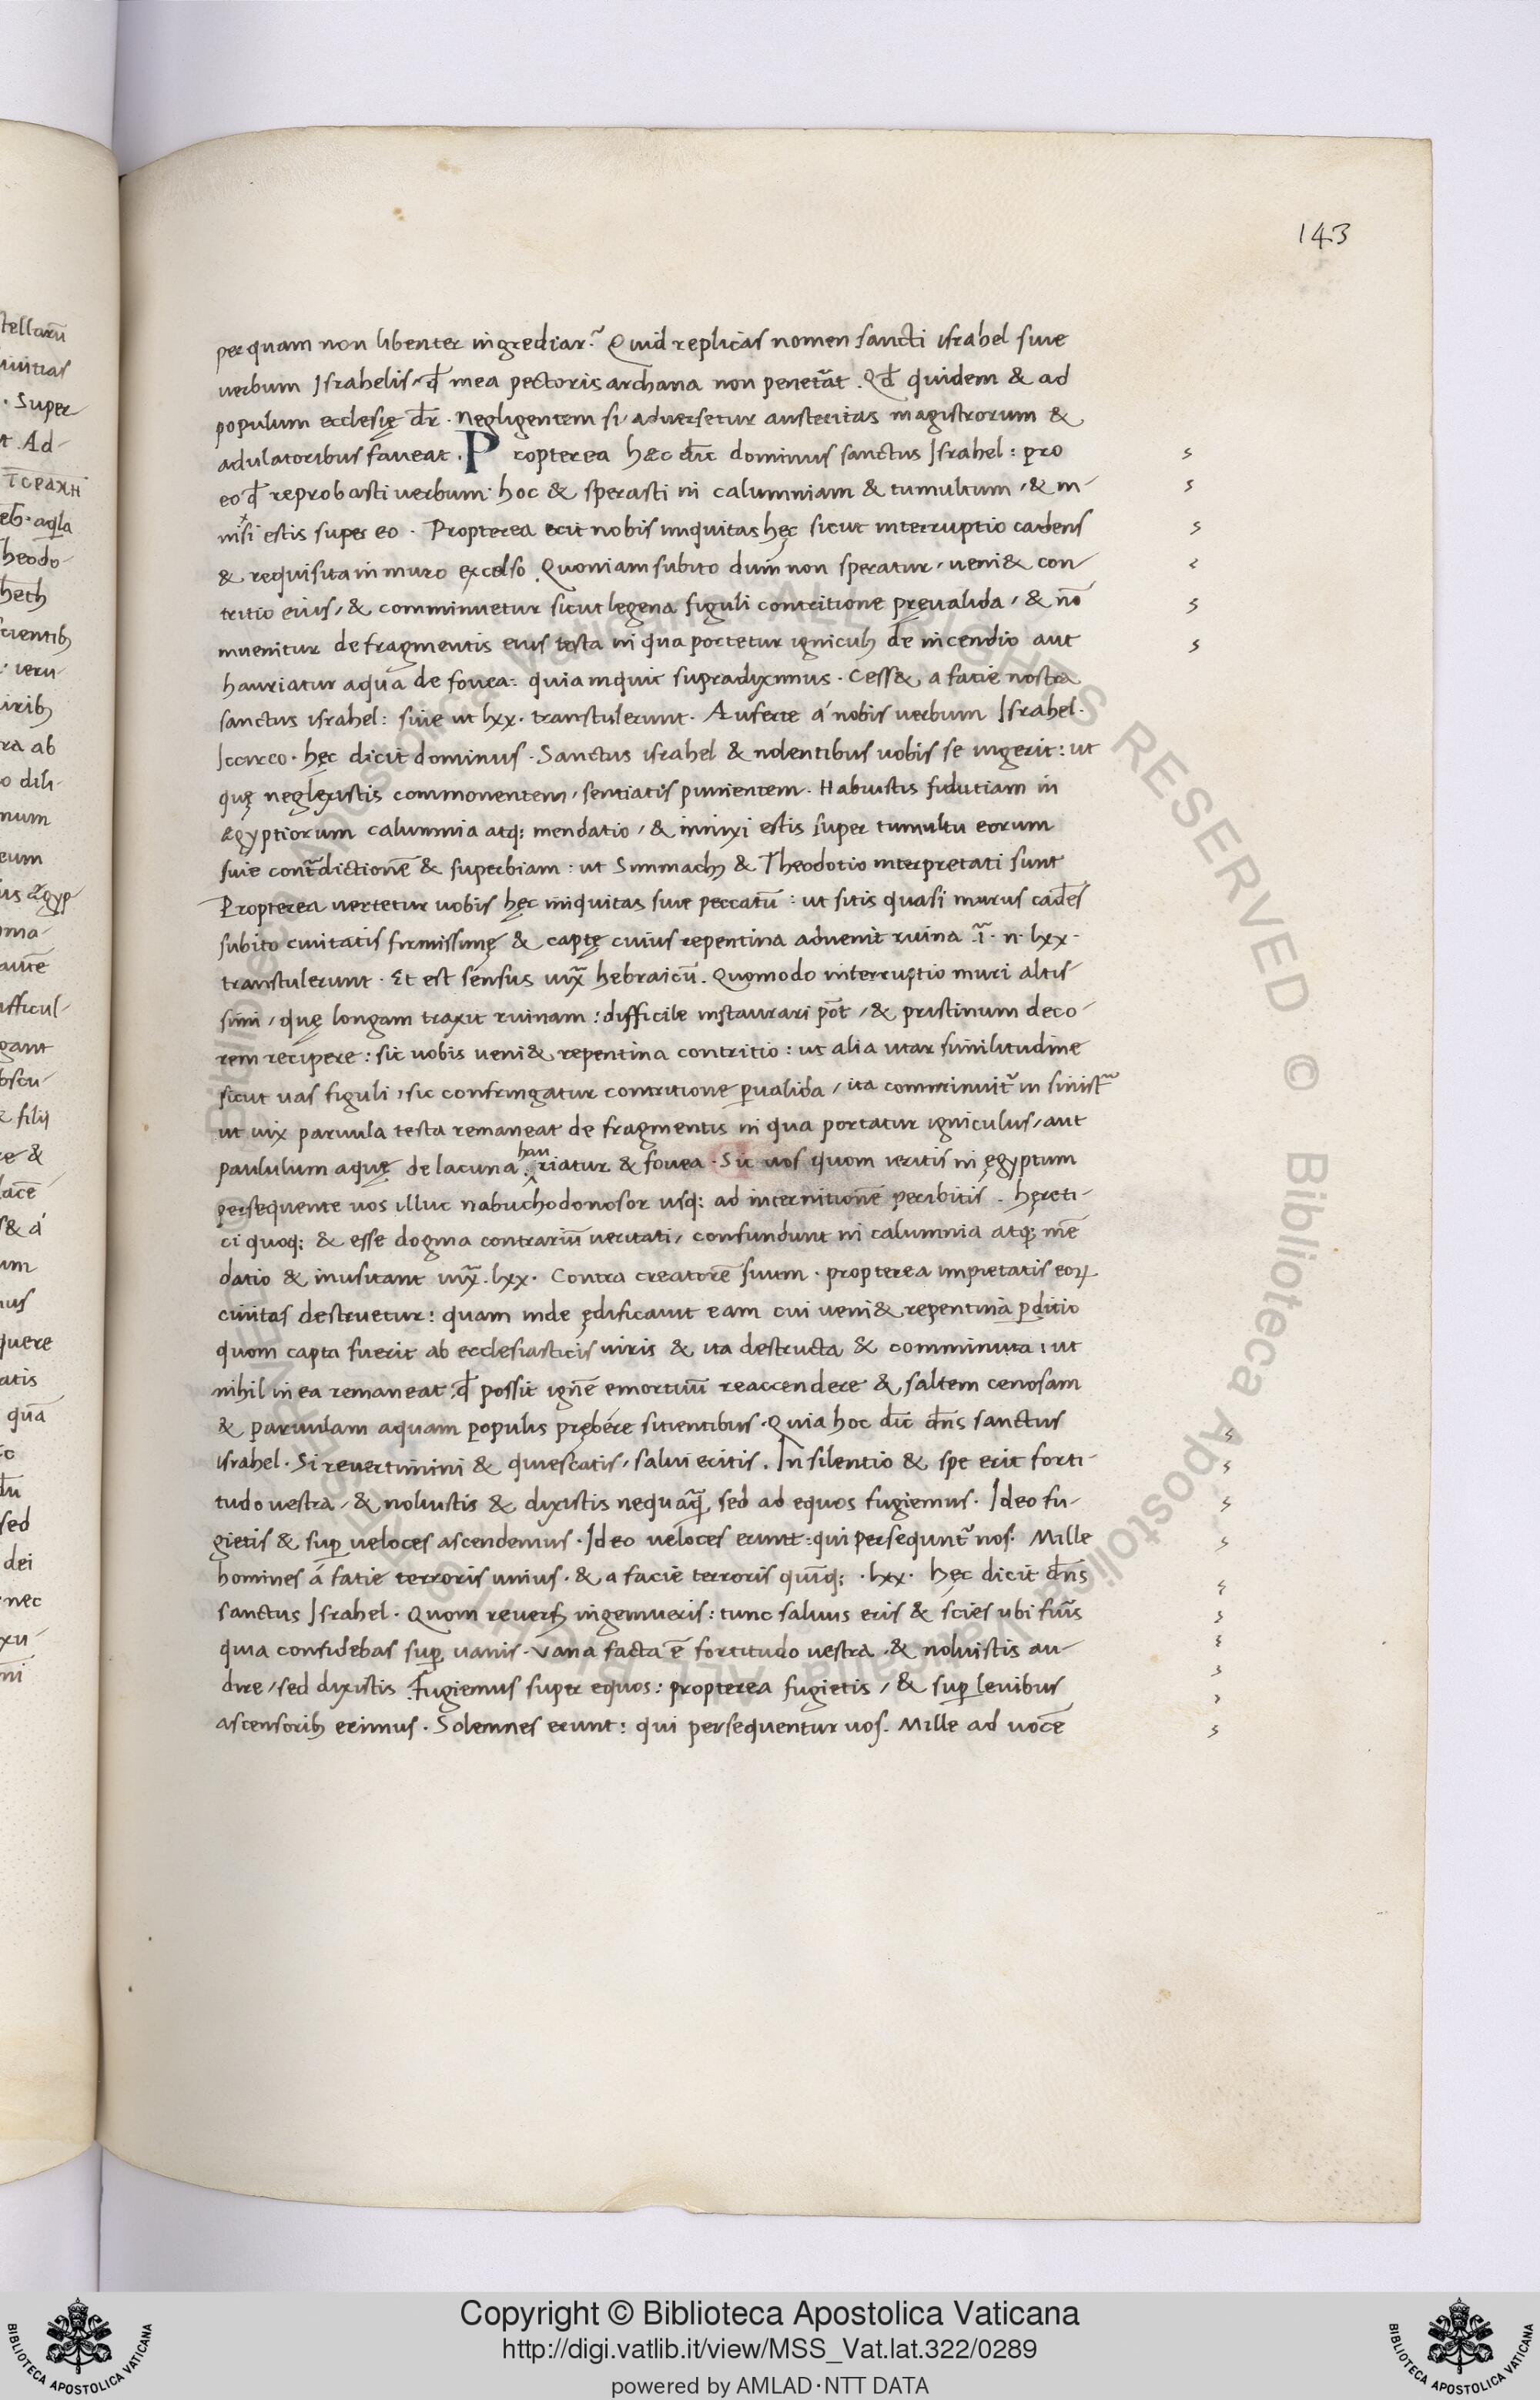 tellarũ
iuitias
. Super
t . Ad-
heodo-
ra ab
num
eum
ma-
gant
filij
um
quere
atis
quã
sed
dei
nec
143
per quam non libenter ingrediar. Quid replicas nomen sancti israhel siue
verbum Israhelis, qđ mea pectoris archana non penet᷑at . Qđ quidem & ad
populum ecclesię dr̃ . negligentem si, adversetur austeritas magistrorum &
adulatoribus faveat . P ropterea hæc dic̃ dominus sanctus Israhel : pro
eo qđ reprobasti verbum hoc & sperasti in calumniam & tumultum , & in-
nisi estis super eo . Propterea erit nobis iniquitas hęc sicut interruptio cadens
& requisita in muro excelso . Quoniam subito dum non speratur , veni& con-
tritio eius , & comminuetur sicut legena figuli contritione prevalida , & nõ
invenitur de fragmentis eius testa in qua portetur igniculꝰ de incendio aut
hauriatur aqua de fovea : quia inquit supradiximus . Cess& a facie nostra
sanctus israhel : siue ut lxx . transtulerunt . Auferte á nobis verbum Israhel .
Iccirco . hęc dicit dominus . Sanctus israhel & nolentibus uobis se ingerit : ut
quę neglexistis commonentem , sentiatis punientem . Habuistis fidutiam in
ægyptiorum calumnia atq; mendatio , & innixi estis super tumultu eorum
siue cont᷑adictionẽ & superbiam : ut Simmachꝰ & Theodotio interpretati sunt
Propterea vertetur uobis hęc iniquitas siue peccatũ : ut sitis quasi murus cadẽs
subito civitatis firmissimę & captę cuius repentina advenit ruina . i᷑ . n . lxx .
transtulerunt . Et est sensus iux̃ hebraicũ . Quomodo interruptio muri altis-
simi , quę longam traxit ruinam : difficile instaurari põt , & pristinum deco-
rem recipere : sic uobis veni& repentina contritio : ut alia utar similitudine
sicut vas figuli , sic confringatur contritione pvalida , ita comminuit᷑ in sinist᷑
ut vix parvula testa remaneat de fragmentis in qua portatur igniculus , aut
paululum aquę de lacuna hauriatur & fovea . Sic uos quom veritis in ęgyptum
persequente uos illuc nabuchodonosor usq; ad internitionẽ peribitis . hęreti-
ci quoq; & esse dogma contrariũ veritati , confundunt in calumnia atq; mẽ
datio & inusitant iux̃ . lxx . Contra creatorẽ suum . propterea impietatis eoꝝ
civitas destruetur : quam inde ędificavit eam cui veni& repentina pditio
quom capta fuerit ab ecclesiasticis viris & ita destructa & comminuta : ut
nihil in ea remaneat , qđ possit ignẽ emortuũ reaccendere & saltem cenosam
& parvulam aquam populis prębére sitientibus . Quia hoc dic̃ dñs sanctus
israhel . Si revertimini & quiescatis , salvi eritis . In silentio & spe erit forti-
tudo vestra , & noluistis & dixistis nequaq̃ sed ad equos fugiemus . Ideo fu-
gietis & sup veloces ascendemus . Ideo veloces erunt : qui persequunt᷑ nos . Mille
homines á facie terroris unius . & a facie terroris quĩq; . lxx . hęc dicit dñs
sanctus Israhel . Quom reversꝰ ingemueris : tunc saluus eris & scies ubi fuis̃
quia confidebas sup vanis . vana facta ẽ fortitudo vestra , & noluistis au-
dire , sed dixistis . Fugiemus super equos : propterea fugietis , & sup levibus
ascensoribꝰ erimus . Solemnes erunt : qui persequentur uos . Mille ad vocẽ
Copyright © Biblioteca Apostolica Vaticana
http://digi.vatlib.it/view/MSS_Vat.lat.322/0289
powered by AMLAD·NTT DATA